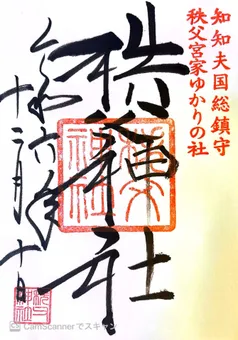 知知夫国総鎮守
秩父宮家ゆかりの社
柞乃杜
秩父神社
令和六年
十二月十日
CamScannerでスキャン